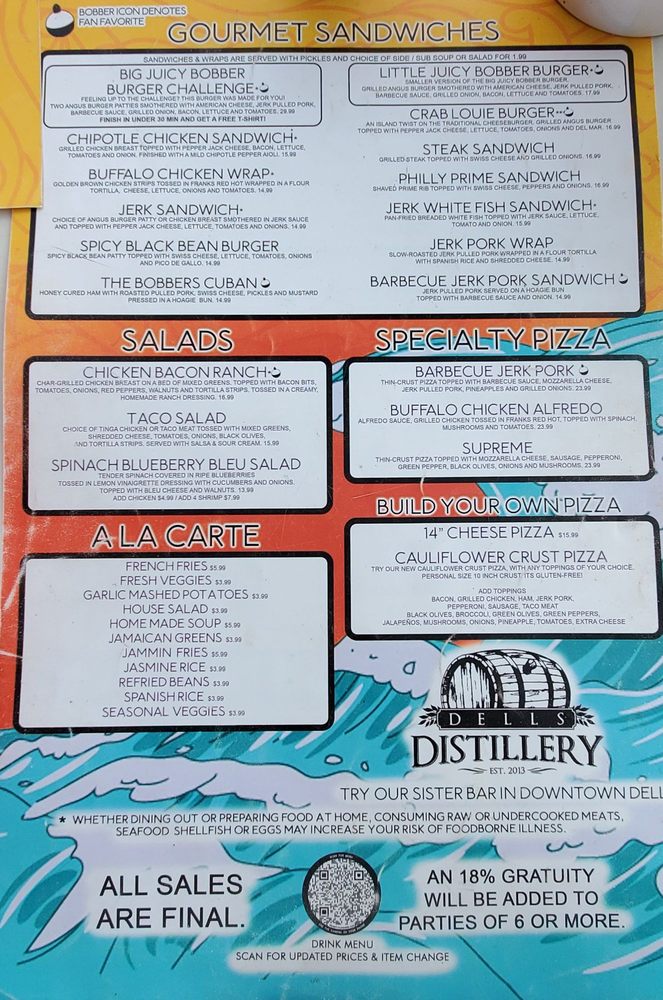 BOBBER ICON DENOTES
FAN FAVORITE
GOURMET SANDWICHES
SANDWICHES & WRAPS ARE SERVED WITH PICKLES AND CHOICE OF SIDE / SUB SOUP OR SALAD FOR 1.99
BIG JUICY BOBBER
BURGER CHALLENGE*
FEELING UP TO THE CHALLENGE? THIS BURGER WAS MADE FOR YOU!
TWO ANGUS BURGER PATTIES SMOTHERED WITH AMERICAN CHEESE, JERK PULLED PORK,
BARBECUE SAUCE, GRILLED ONION, BACON, LETTUCE AND TOMATOES. 29.99
FINISH IN UNDER 30 MIN AND GET A FREE T-SHIRT!
CHIPOTLE CHICKEN SANDWICH*
GRILLED CHICKEN BREAST TOPPED WITH PEPPER JACK CHEESE, BACON, LETTUCE,
TOMATOES AND ONION. FINISHED WITH A MILD CHIPOTLE PEPPER AIOLI. 15.99
BUFFALO CHICKEN WRAP*
GOLDEN BROWN CHICKEN STRIPS TOSSED IN FRANKS RED HOT WRAPPED IN A FLOUR
TORTILLA, CHEESE, LETTUCE, ONIONS AND TOMATOES. 14.99
JERK SANDWICH*
CHOICE OF ANGUS BURGER PATTY OR CHICKEN BREAST SMOTHERED IN JERK SAUCE
AND TOPPED WITH PEPPER JACK CHEESE, LETTUCE, TOMATOES AND ONIONS. 14.99
SPICY BLACK BEAN BURGER
SPICY BLACK BEAN PATTY TOPPED WITH SWISS CHEESE, LETTUCE, TOMATOES, ONIONS
AND PICO DE GALLO. 14.99
THE BOBBERS CUBAN
HONEY CURED HAM WITH ROASTED PULLED PORK, SWISS CHEESE, PICKLES AND MUSTARD
PRESSED IN A HOAGIE BUN. 14.99
LITTLE JUICY BOBBER BURGER*
SMALLER VERSION OF THE BIG JUICY BOBBER BURGER,
GRILLED ANGUS BURGER SMOTHERED WITH AMERICAN CHEESE, JERK PULLED PORK,
BARBECUE SAUCE, GRILLED ONION, BACON, LETTUCE AND TOMATOES. 17.99
CRAB LOUIE BURGER*
AN ISLAND TWIST ON THE TRADITIONAL CHEESEBURGER, GRILLED ANGUS BURGER
TOPPED WITH PEPPER JACK CHEESE, LETTUCE, TOMATOES, ONIONS AND DEL MAR. 16.99
STEAK SANDWICH
GRILLED STEAK TOPPED WITH SWISS CHEESE AND GRILLED ONIONS. 16.99
PHILLY PRIME SANDWICH
SHAVED PRIME RIB TOPPED WITH SWISS CHEESE, PEPPERS AND ONIONS. 16.99
JERK WHITE FISH SANDWICH*
PAN-FRIED BREADED WHITE FISH TOPPED WITH JERK SAUCE, LETTUCE,
TOMATO AND ONION. 15.99
JERK PORK WRAP
SLOW-ROASTED JERK PULLED PORK WRAPPED IN A FLOUR TORTILLA
WITH SPANISH RICE AND SHREDDED CHEESE. 14.99
BARBECUE JERK PORK SANDWICH
JERK PULLED PORK SERVED ON A HOAGIE BUN
TOPPED WITH BARBECUE SAUCE AND ONION. 14.99
SALADS
CHICKEN BACON RANCH*
CHAR-GRILLED CHICKEN BREAST ON A BED OF MIXED GREENS. TOPPED WITH BACON BITS,
TOMATOES, ONIONS, RED PEPPERS, WALNUTS AND TORTILLA STRIPS. TOSSED IN A CREAMY,
HOMEMADE RANCH DRESSING. 16.99
TACO SALAD
CHOICE OF TINGA CHICKEN OR TACO MEAT TOSSED WITH MIXED GREENS,
SHREDDED CHEESE, TOMATOES, ONIONS, BLACK OLIVES,
AND TORTILLA STRIPS. SERVED WITH SALSA & SOUR CREAM. 15.99
SPINACH BLUEBERRY BLEU SALAD
TENDER SPINACH COVERED IN RIPE BLUEBERRIES
TOSSED IN LEMON VINAIGRETTE DRESSING WITH CUCUMBERS AND ONIONS.
TOPPED WITH BLEU CHEESE AND WALNUTS. 13.99
ADD CHICKEN $4.99 / ADD 4 SHRIMP $7.99
SPECIALTY PIZZA
BARBECUE JERK PORK
THIN-CRUST PIZZA TOPPED WITH BARBECUE SAUCE, MOZZARELLA CHEESE,
JERK PULLED PORK, PINEAPPLES AND GRILLED ONIONS. 23.99
BUFFALO CHICKEN ALFREDO
ALFREDO SAUCE, GRILLED CHICKEN TOSSED IN FRANKS RED HOT, TOPPED WITH SPINACH,
MUSHROOMS AND TOMATOES. 23.99
SUPREME
THIN-CRUST PIZZA TOPPED WITH MOZZARELLA CHEESE, SAUSAGE, PEPPERONI,
GREEN PEPPER, BLACK OLIVES, ONIONS AND MUSHROOMS. 23.99
A LA CARTE
FRENCH FRIES $5.99
FRESH VEGGIES $3.99
GARLIC MASHED POTATOES $3.99
HOUSE SALAD $3.99
HOME MADE SOUP $5.99
JAMAICAN GREENS $3.99
JAMMIN FRIES $5.99
JASMINE RICE $3.99
REFRIED BEANS $3.99
SPANISH RICE $3.99
SEASONAL VEGGIES $3.99
BUILD YOUR OWN PIZZA
14" CHEESE PIZZA $15.99
CAULIFLOWER CRUST PIZZA
TRY OUR NEW CAULIFLOWER CRUST PIZZA, WITH ANY TOPPINGS OF YOUR CHOICE.
PERSONAL SIZE 10 INCH CRUST. ITS GLUTEN-FREE!
ADD TOPPINGS
BACON, GRILLED CHICKEN, HAM, JERK PORK,
PEPPERONI, SAUSAGE, TACO MEAT
BLACK OLIVES, BROCCOLI, GREEN OLIVES, GREEN PEPPERS,
JALAPEÑOS, MUSHROOMS, ONIONS, PINEAPPLE, TOMATOES, EXTRA CHEESE
DELLS
DISTILLERY
EST. 2013
TRY OUR SISTER BAR IN DOWNTOWN DELL
* WHETHER DINING OUT OR PREPARING FOOD AT HOME, CONSUMING RAW OR UNDERCOOKED MEATS,
SEAFOOD SHELLFISH OR EGGS MAY INCREASE YOUR RISK OF FOODBORNE ILLNESS.
ALL SALES
ARE FINAL.
DRINK MENU
SCAN FOR UPDATED PRICES & ITEM CHANGE
AN 18% GRATUITY
WILL BE ADDED TO
PARTIES OF 6 OR MORE.